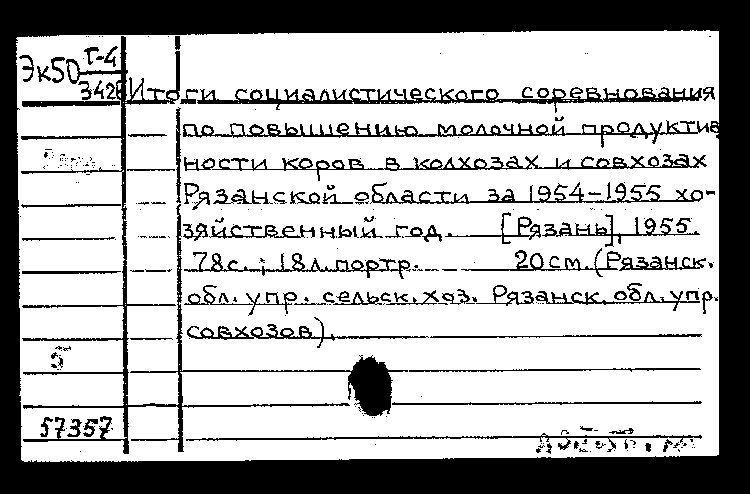 Эк50 Г-4
3426
Итоги социалистического соревнования
по повышению молочной продуктив
ности коров в колхозах и совхозах
Рязанской области за 1954-1955 хо-
зяйственный год. [Рязань], 1955.
78с.; 18л.портр. 20см.(Рязанск.
обл.упр. сельск.хоз. Рязанск.обл.упр.
совхозов).
5
57357